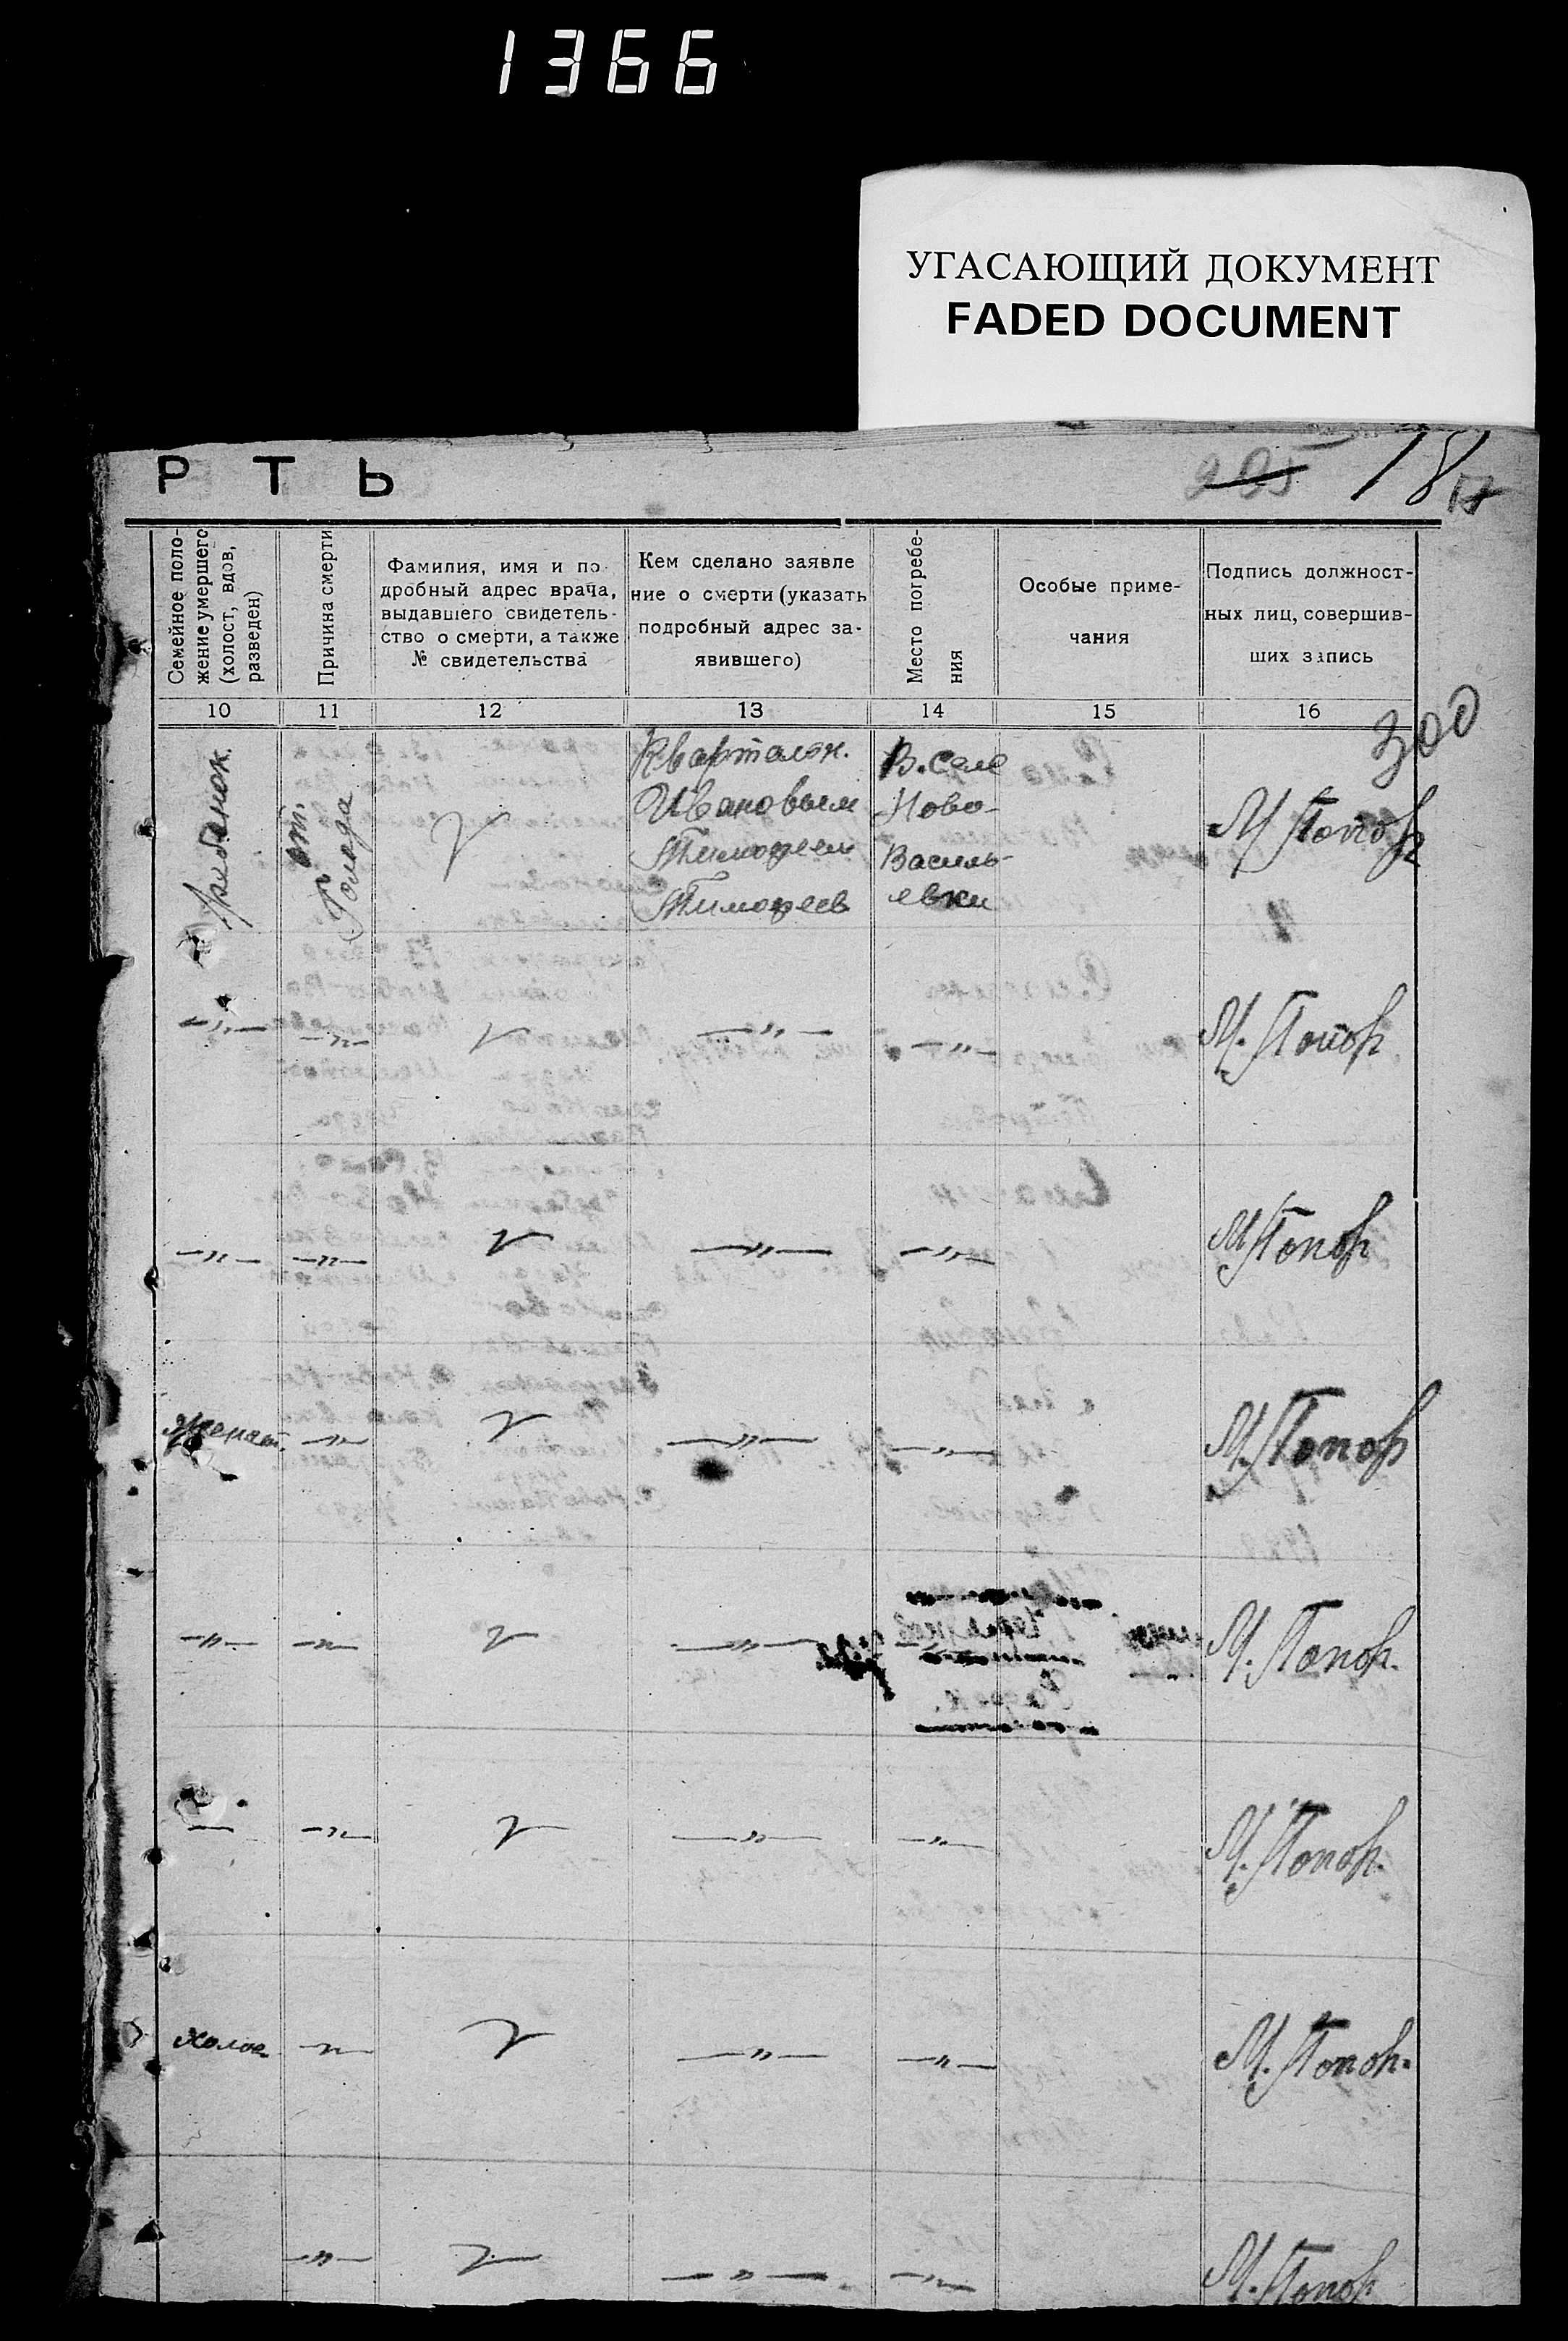 1366
УГАСАЮЩИЙ ДОКУМЕНТ
FADED DOCUMENT
РТЬ
295 18 17
Семейное поло-
жение умершего
(холост, вдов,
разведен)
Причина смерти
Фамилия, имя и по
дробный адрес врача,
выдавшего свидетель-
ство о смерти, а также
№ свидетельства
Кем сделано заявле
ние о смерти (указать
подробный адрес за-
явившего)
Место погребе-
ния
Особые приме-
чания
Подпись должност-
ных лиц, совершив-
ших запись
10 11 12 13 14 15 16
300
от
Голода
Квартальн.
Ивановым
Тимофеем
Тимофеев
В. Селе
Ново-
Василь-
евки
М Попов
—"— —"— —"— —"— М. Попов
—"— —"— —"— —"— М Попов
Женат. —"— —"— —"— М. Попов
—"— —"— —"— М. Попов.
— —"— —"— —"— М. Попов.
холос. —"— —"— —"— М. Попов.
—"— —"— —"— М. Попов